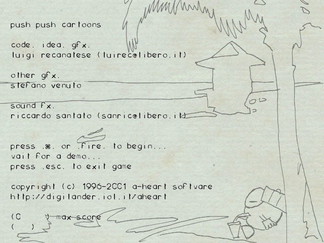 push push cartoons
code. idea. gfx.
luigi recanatese (luirec@libero.it)
other gfx.
stefano venuto
sound fx.
riccardo santato (sanric@libero.it)
press .※. or .fire. to begin...
wait for a demo...
press .esc. to exit game
copyright (c) 1996-2001 a-heart software
http://digilander.iol.it/aheart
max score